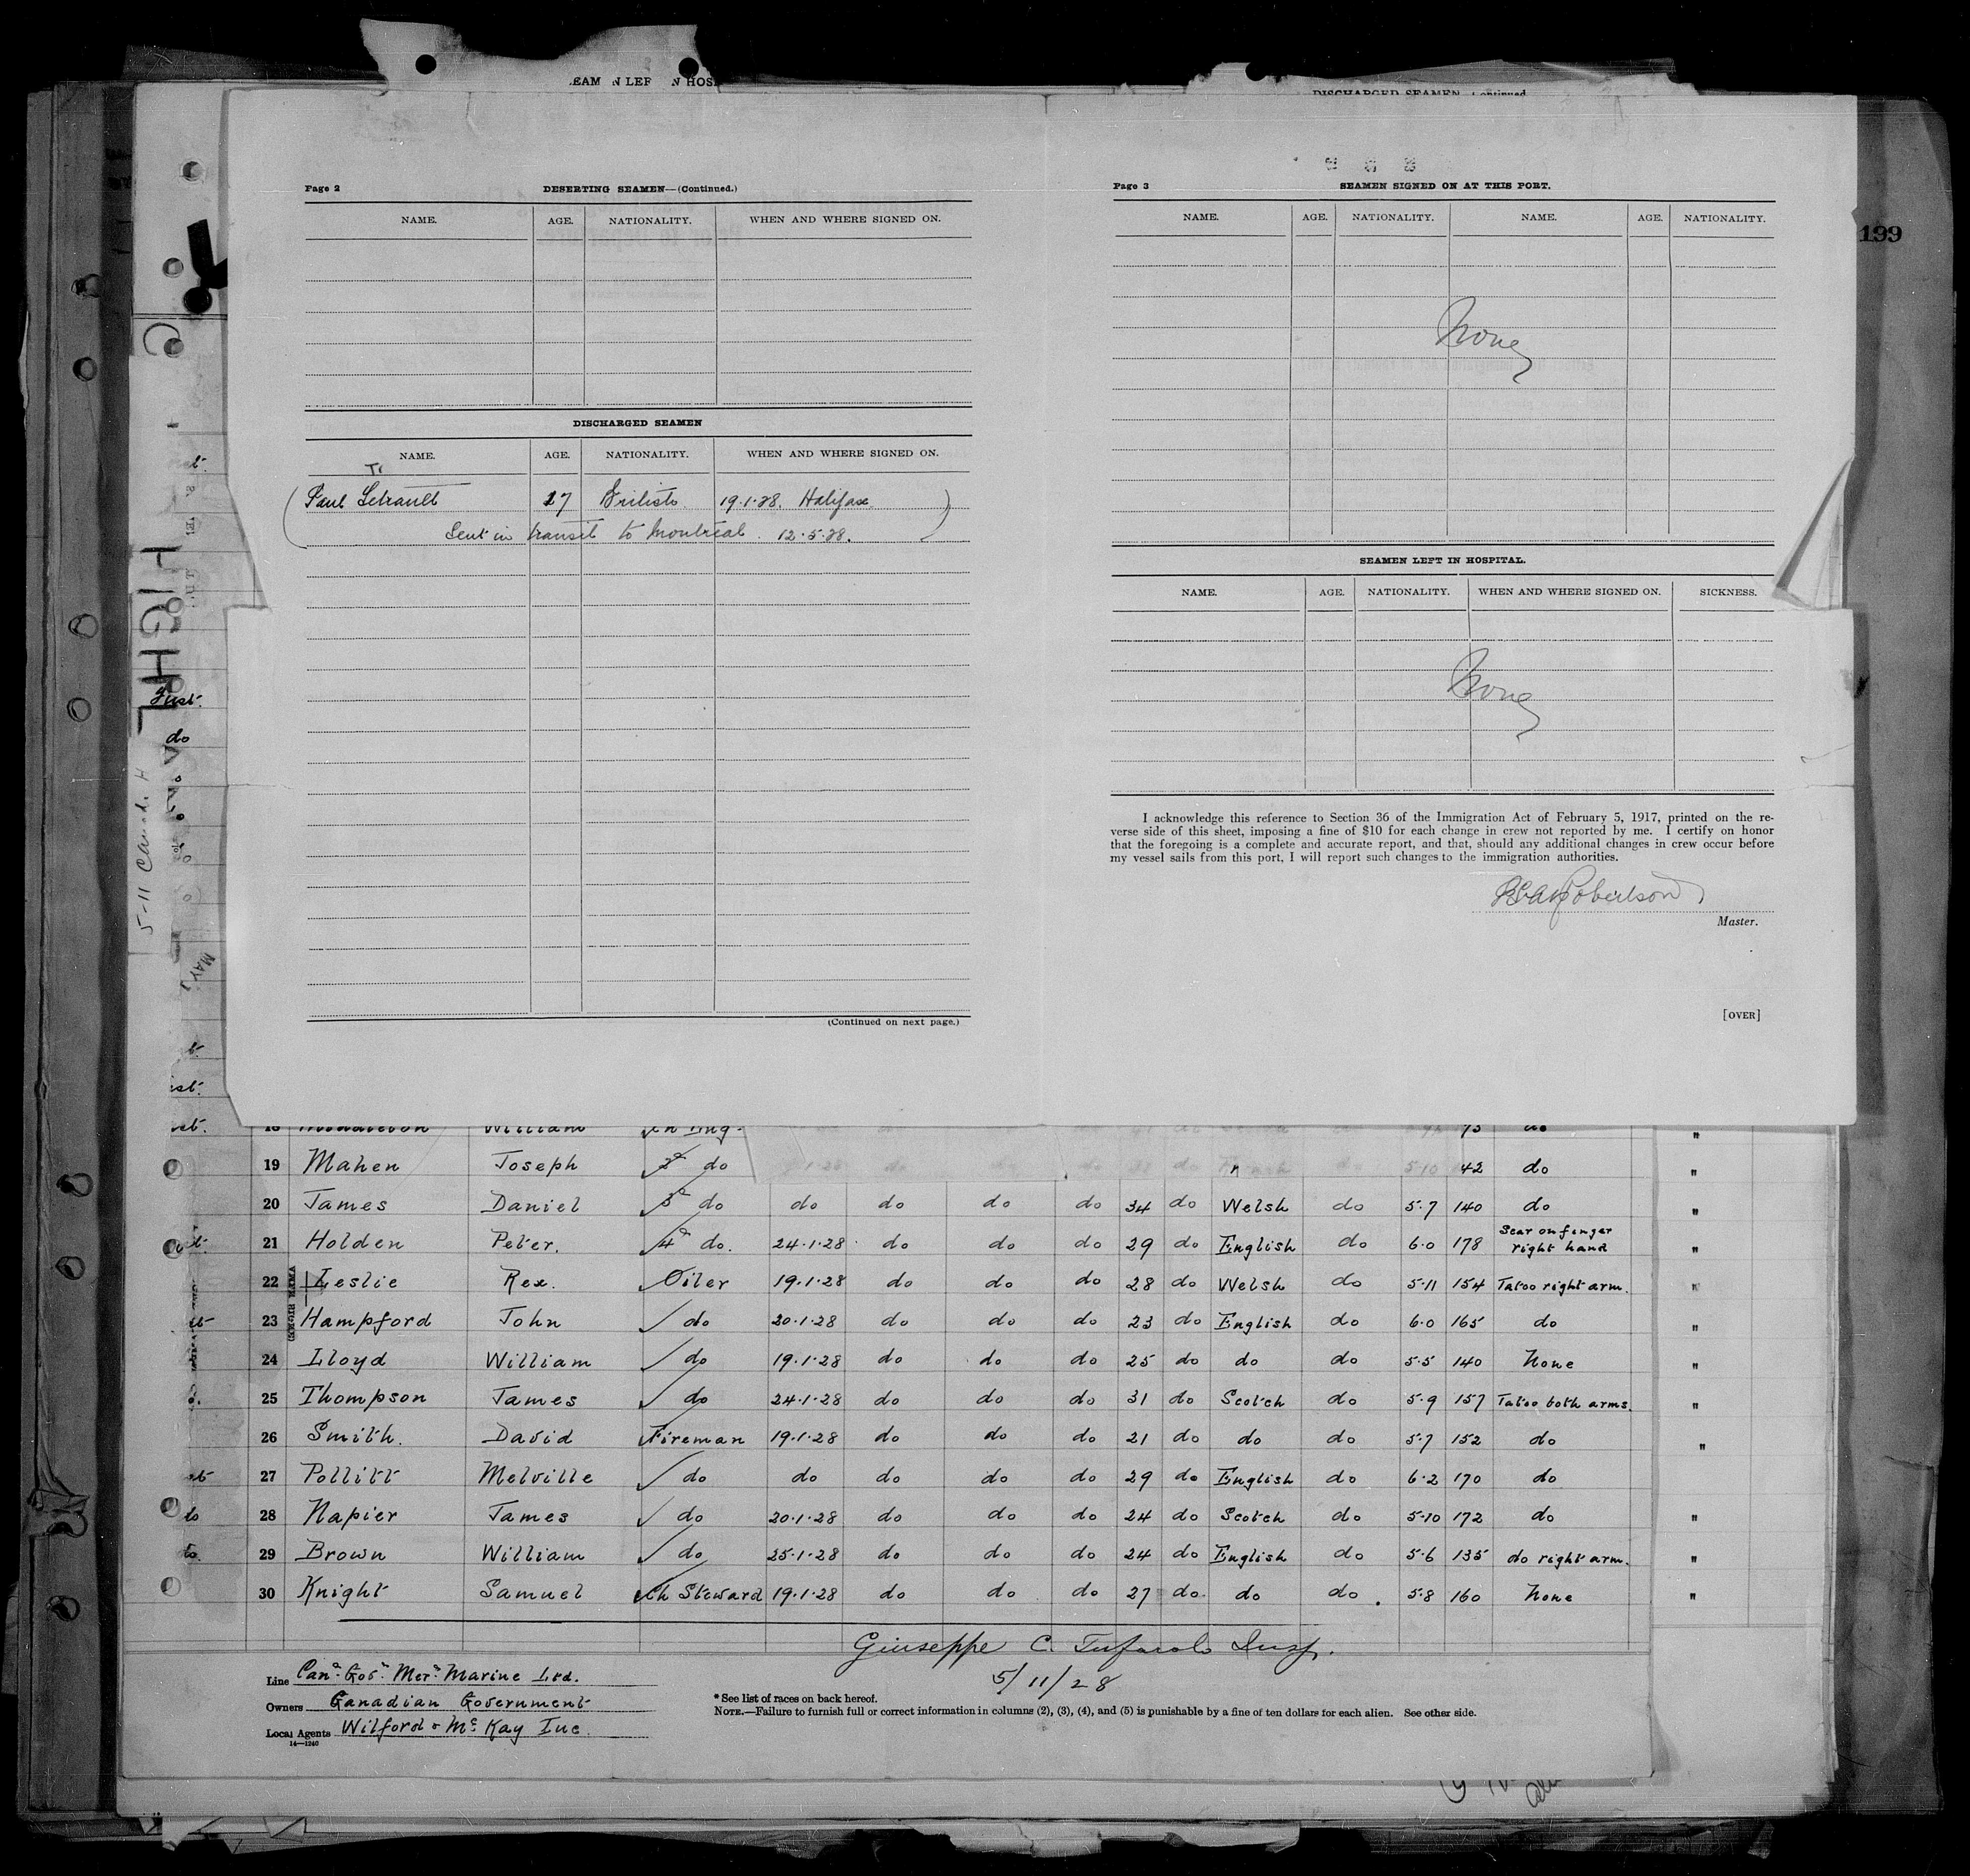 EAM N LEF N HOS
DISCHARGED SEAMEN
199
Page 2 DESERTING SEAMEN—(Continued.)
NAME. AGE. NATIONALITY. WHEN AND WHERE SIGNED ON.
DISCHARGED SEAMEN
NAME. AGE. NATIONALITY. WHEN AND WHERE SIGNED ON.
Paul Tetrault 17 British 19.1.28. Halifax
Sent in transit to Montreal. 12.5.28.
(Continued on next page.)
Page 3 SEAMEN SIGNED ON AT THIS PORT.
NAME. AGE. NATIONALITY. NAME. AGE. NATIONALITY.
None
SEAMEN LEFT IN HOSPITAL.
NAME. AGE. NATIONALITY. WHEN AND WHERE SIGNED ON. SICKNESS.
None
I acknowledge this reference to Section 36 of the Immigration Act of February 5, 1917, printed on the re-
verse side of this sheet, imposing a fine of $10 for each change in crew not reported by me. I certify on honor
that the foregoing is a complete and accurate report, and that, should any additional changes in crew occur before
my vessel sails from this port, I will report such changes to the immigration authorities.
Robertson
Master.
[OVER]
18 Middleton William Ch Eng.
19 Mahen Joseph 2d do 42 do "
20 James Daniel 3d do do do do do 34 do Welsh do 5.7 140 do "
21 Holden Peter. 4th do. 24.1.28 do do do 29 do English do 6.0 178 Scar on finger right hand "
22 Leslie Rex. Oiler 19.1.28 do do do 28 do Welsh do 5.11 154 Tatoo right arm. "
23 Hampford John do 20.1.28 do do do 23 do English do 6.0 165 do "
24 Lloyd William do 19.1.28 do do do 25 do do do 5.5 140 None "
25 Thompson James do 24.1.28 do do do 31 do Scotch do 5.9 157 Tatoo both arms. "
26 Smith. David Fireman 19.1.28 do do do 21 do do do 5.7 152 do "
27 Pollitt Melville do do do do do 29 do English do 6.2 170 do
28 Napier James do 20.1.28 do do do 24 do Scotch do 5.10 172 do "
29 Brown William do 25.1.28 do do do 24 do English do 5.6 135 do right arm. "
30 Knight Samuel Ch Steward 19.1.28 do do do 27 do do do 5.8 160 None "
Giuseppe C. Tufarolo Insp.
5/11/28
Line Can. Gov. Mer. Marine Ltd.
Owners Canadian Government
Local Agents Wilford & McKay Inc.
14—1240
* See list of races on back hereof.
NOTE.—Failure to furnish full or correct information in columns (2), (3), (4), and (5) is punishable by a fine of ten dollars for each alien. See other side.